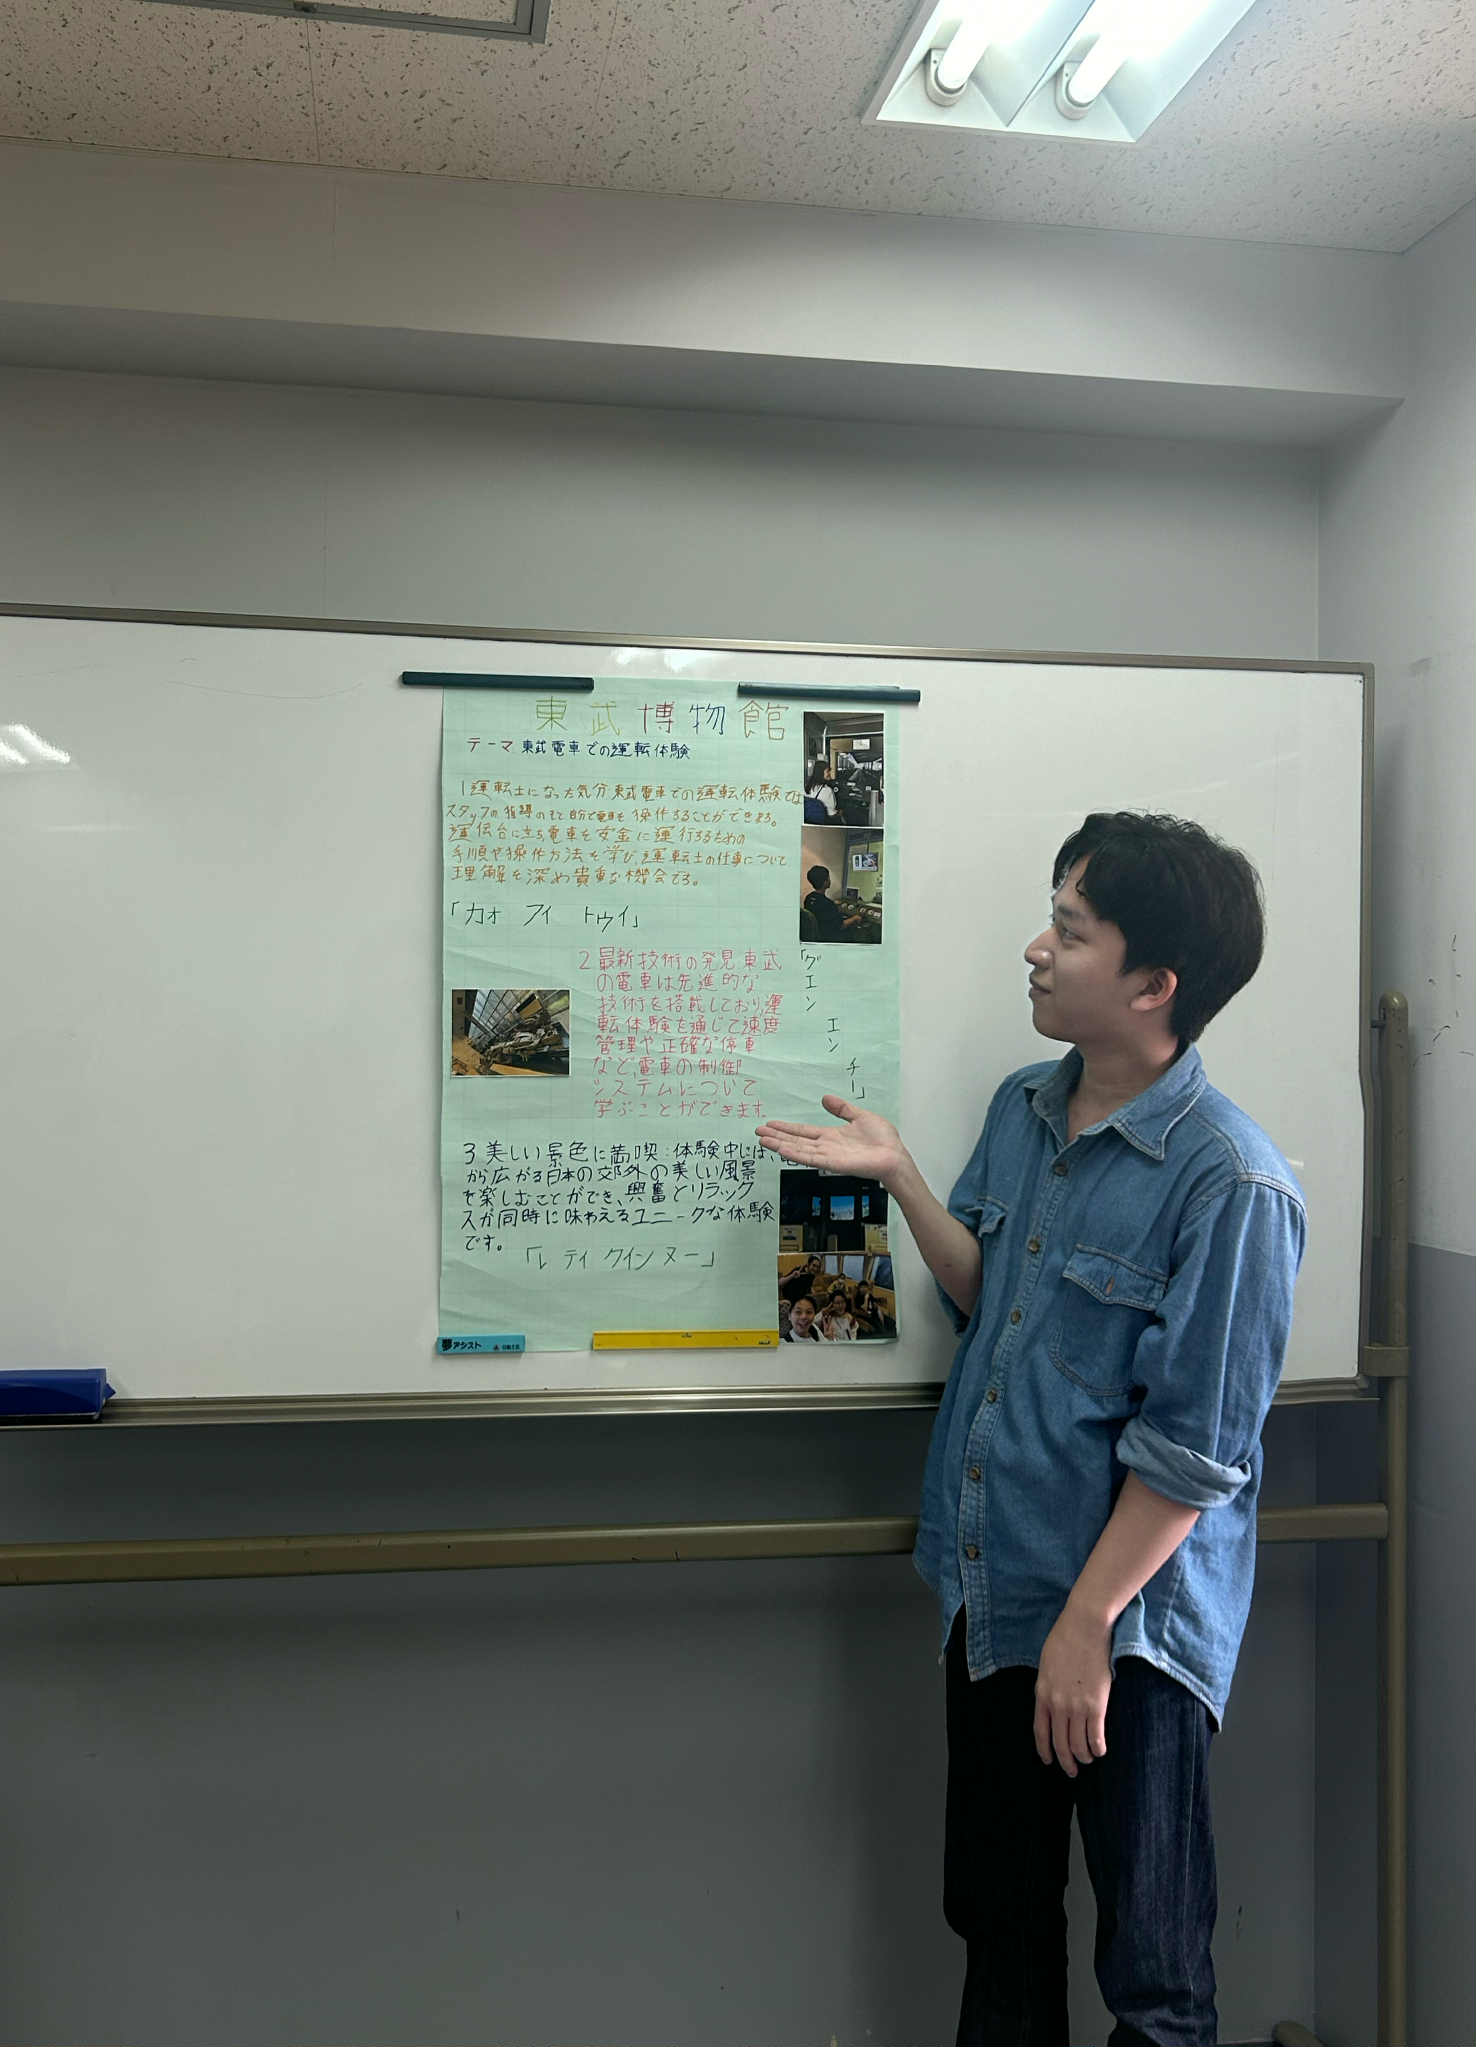 東武博物館
テーマ 東武電車での運転体験
1運転士になった気分東武電車での運転体験では
スタッフの指導のもと自分で電車を操作することができる。
運伝台に立ち電車を安全に運行するための
手順や操作方法を学び、運転士の仕事について
理解を深め貴重な機会でる。
「カオ フィ トゥイ」
2最新技術の発見東武
の電車は先進的な
技術を搭載しており、運
転体験を通じて速度
管理や正確な停車
など、電車の制御
システムについて
学ぶことができます。
「グエン
エン
チー」
3美しい景色に満喫:体験中には、電
から広がる日本の郊外の美しい風景
を楽しむことができ、興奮とリラック
スが同時に味わえるユニークな体験
です。
「レ ティ クイン ヌー」
夢アシスト